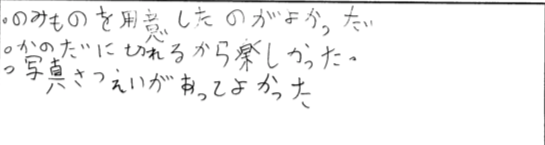 。のみものを用意したのがよかっだ
。かのだに切れるから楽しかった。
。写真さつえいがあってよかった